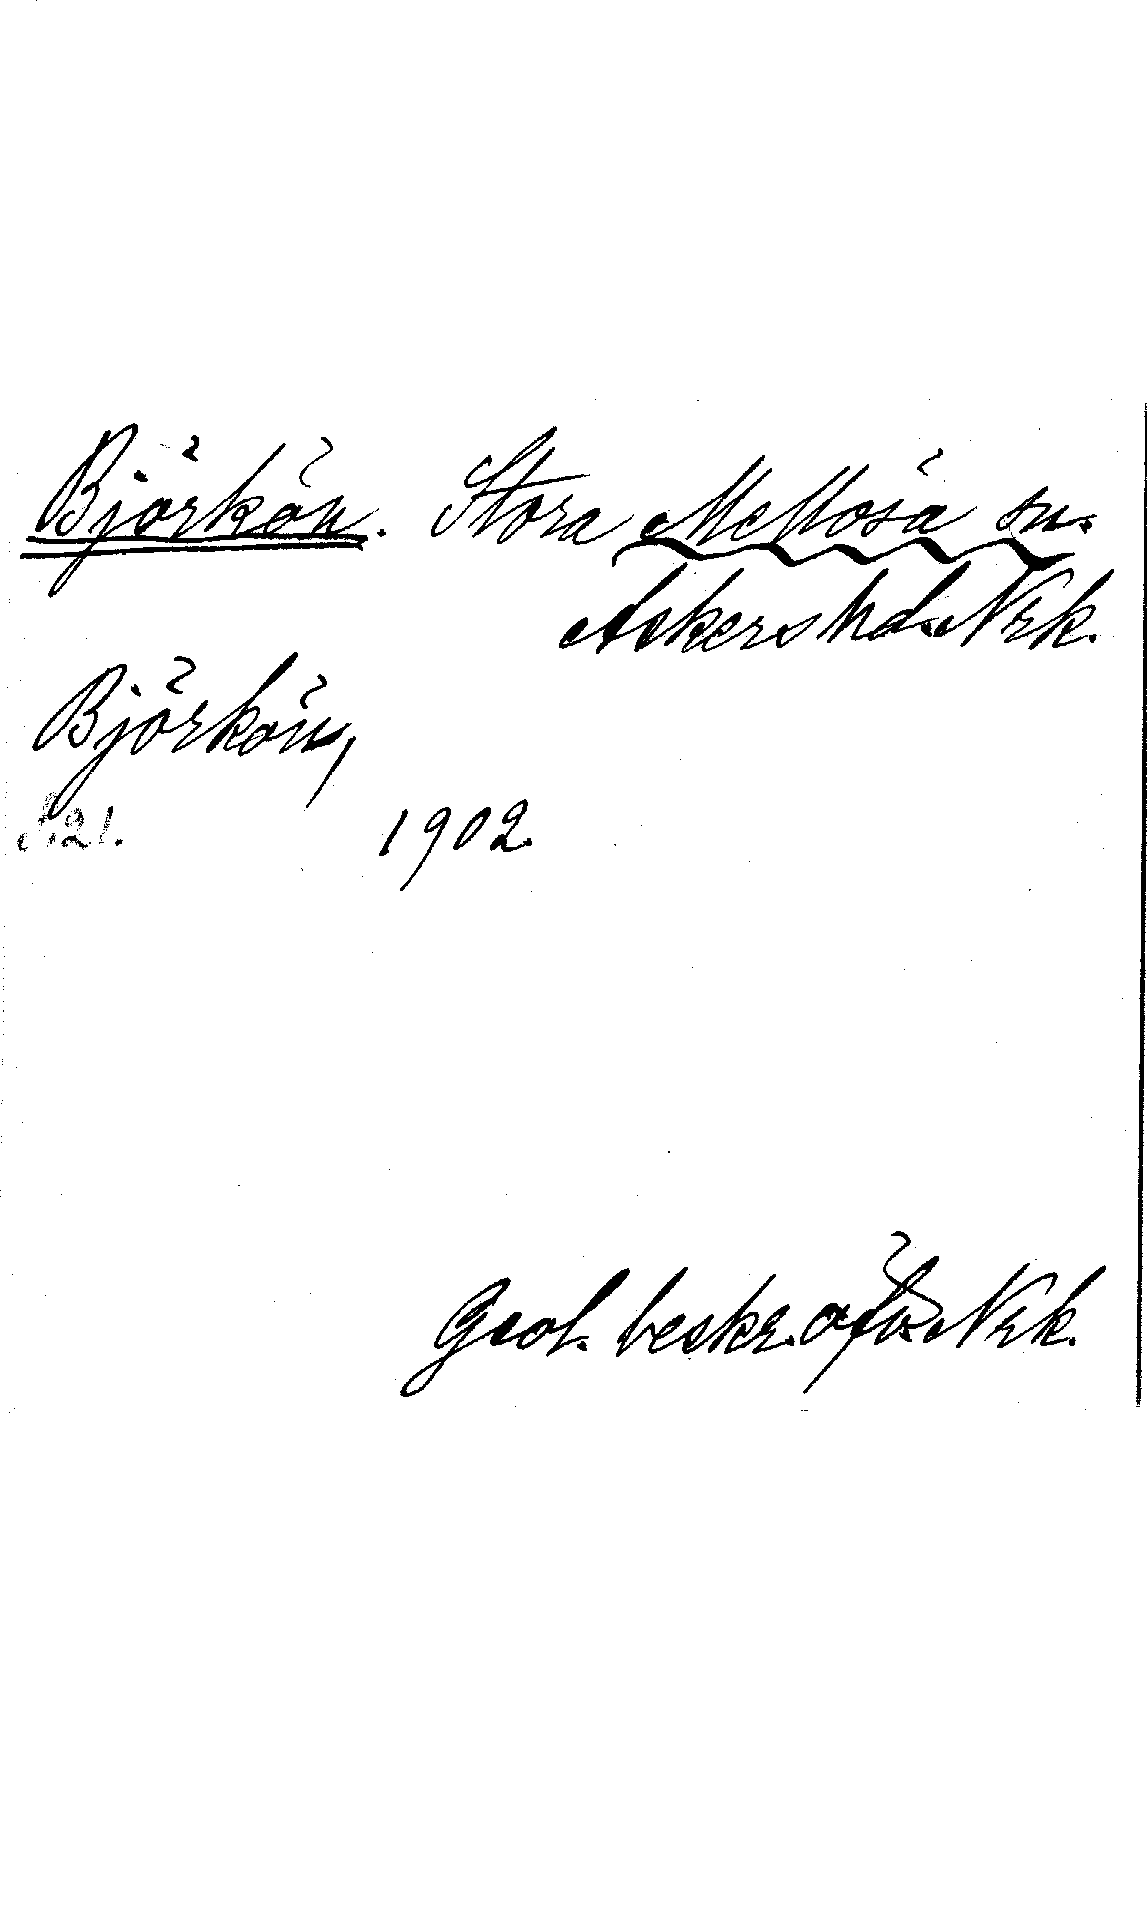 Björkön. Stora Mellösa sn.
Askers hd. Nrk.
Björkön,
S. 21. 1902.
Geol. beskr. öfv. Nrk.